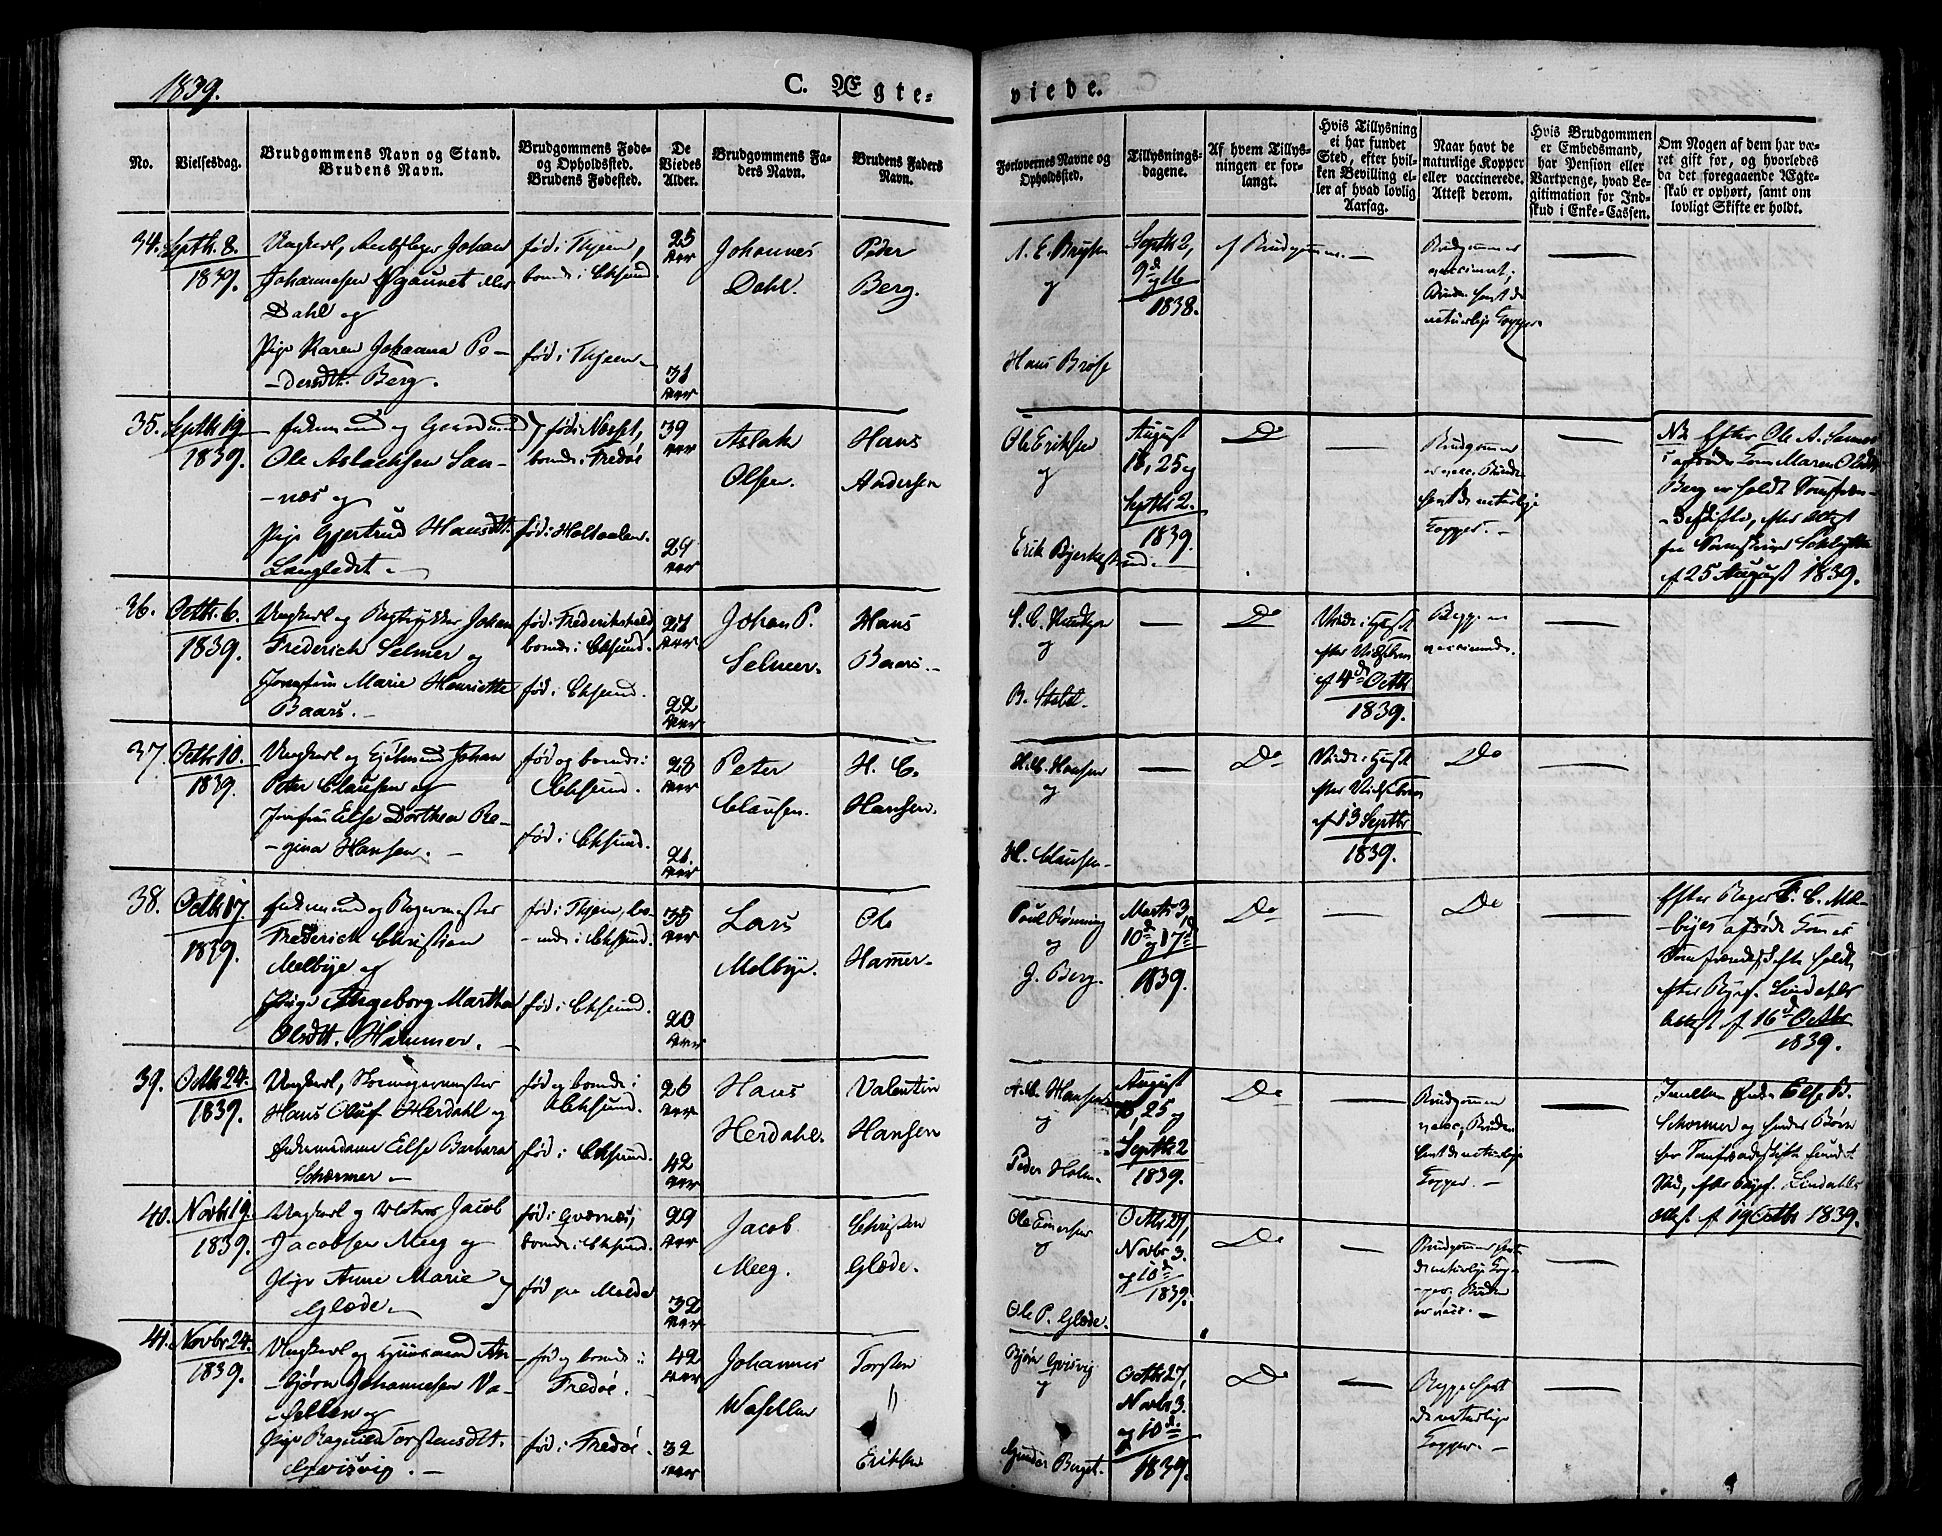 1839.
C. Ægte=
viede.
No.
Vielsesdag.
Brudgommens Navn og Stand.
Brudens Navn.
Brudgommens Føde-
og Opholdssted.
Brudens Fødested.
De
Viedes
Alder.
Brudgommens Fa-
ders Navn.
Brudens Faders
Navn.
Forlovernes Navne og
Opholdssted.
Tillysnings-
dagene.
Af hvem Tillys-
ningen er for-
langt.
Hvis Tillysning
ei har fundet
Sted, efter hvil-
ken Bevilling el-
ler af hvad lovlig
Aarsag.
Naar havt de
naturlige Kopper
eller vaccinerede.
Attest derom.
Hvis Brudgommen
er Embedsmand,
har Pension eller
Vartpenge, hvad Le-
gitimation for Ind-
skud i Enke-Cassen.
Om Nogen af dem har væ-
ret gift før, og hvorledes
da det foregaaende Ægte-
skab er ophørt, samt om
lovligt Skifte er holdt.
34.
Septbr 8.
1839.
Ungkarl, Johan
Johannesen
Dahl og
Pige Karen Johanna Pe-
-dersdtt. Berg.
25
Aar
31
Aar
Johannes
Dahl.
Peder
Berg.
og
Hans
Septbr 2,
9d og 16
1838.
af Brudgommen. -
Brudgommen
vaccineret;
Bruden havt de
naturlige Kopper
35.
Septbr 19
1839.
Enkemand og Gaardmand
Ole Aslachsen San-
-næs og
Pige Gjertrud Hansdtt.
født i
boende i Fredøe
fød i Holtaalen.
39
Aar
29
Aar
Aslak
Olsen.
Hans
Andersen
Ole Eriksen
og
Erik
August
18, 25 og
Septbr 2.
1839.
Do
Brudgommen
er vacc. Bruden
havt de naturlige
Kopper. -
Efter Ole A.
afdøde Kone Maren
Berg er holdt
efter Attest
fra
af 25 August 1839.
36.
Octbr. 6.
1839.
Ungkarl og Johan
Frederich Selmer og
Jomfrue Marie Henriette
Baars. -
fød i Frederikshald,
boende i Chsund.
fød i Chsund.
27
Aar
22
Aar
Johan P.
Selmer.
Hans
Baars. -
og
B.
Do
Viede i Huset
efter Vielsebrev
af 4de Octbr
1839.
Begge er
vaccinerede.
37.
Octbr 10.
1839.
Ungkarl og Johan
Peter Clausen og
Jomfrue Else Dorthea Re-
-gina Hansen. -
fød og boende i
Chsund.
fød i Chsund.
28
Aar
21.
Aar
Peter
Clausen.
H. C.
Hansen.
H. C. Hansen
og
H. Clausen-
Do
Viede i Huset
efter Vielsebrev
af 13 Septbr
1839.
Do
38.
Octbr 17.
1839.
Enkemand og Bagermester
Frederich Christian
Melbye og
Pige Ingeborg Martha
Olsdtt. Hammer. -
35
Aar
20
Aar
Lars
Melbye.
Ole
Hammer.
Poul Rønning
og
J. Berg.
Marts 3,
10d og 17d
1839.
Do
Do
Efter Bager F. C. Mel-
-byes afdøde Kone er
holdt,
efter Byf. Lindahls
Attest af 16d Octbr
1839.
39.
Octbr 24.
1839.
Ungkarl,
Hans Oluf Herdahl og
Enkemadame Else Barbara
Schærmer -
fød og boende i
Chsund.
fød i Chsund.
26
Aar
42
Aar
Hans
Herdahl.
Valentin
Hansen
Hansen
og
Peder Holm-
August
18, 25 og
Septbr 2
1839.
Do
Brudgommen
vacc, Bruden
havt de naturlige
Kopper. -
Imellem Else B.
Schærmer og hendes Børn
Sted, efter Byf. Lindahls
Attest af 19 Octbr 1839.
40.
Novbr 19.
1839.
Ungkarl og Jacob
Jacobsen Meeg og
Pige Anne Marie
Glæde. -
fød i Qværnæs,
boende i Chsund.
fød paa Molde
29
Aar
32
Aar
Jacob
Meeg.
Christen
Glæde.
Ole
og
Ole P. Glæde.
Octbr 27,
Novbr 3.
og 10d
1839.
Do
Brudgommen havt
de naturlige Kop-
-per, Bruden
er vacc. -
41.
Novbr 24.
1839.
Ungkarl og Huusmand An-
-bjørn Johannesen Va-
-sellen og
Pige Ragnild Torstensdtt.
Qvisvig. -
fød og boende i
Fredøe.
fød i Fredøe.
42
Aar
32
Aar
Johannes
Wasellen
Torsten
Eriksen
Bjørn Qvisvig
og
Gunder Berget.
Octbr 27,
Novbr 3.
og 10d.
1839.
Do
Begge havt
de naturlige
Kopper. -